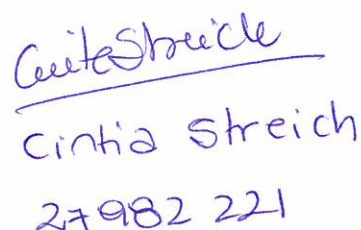 Cintia Streich
Cintia Streich
27982 221